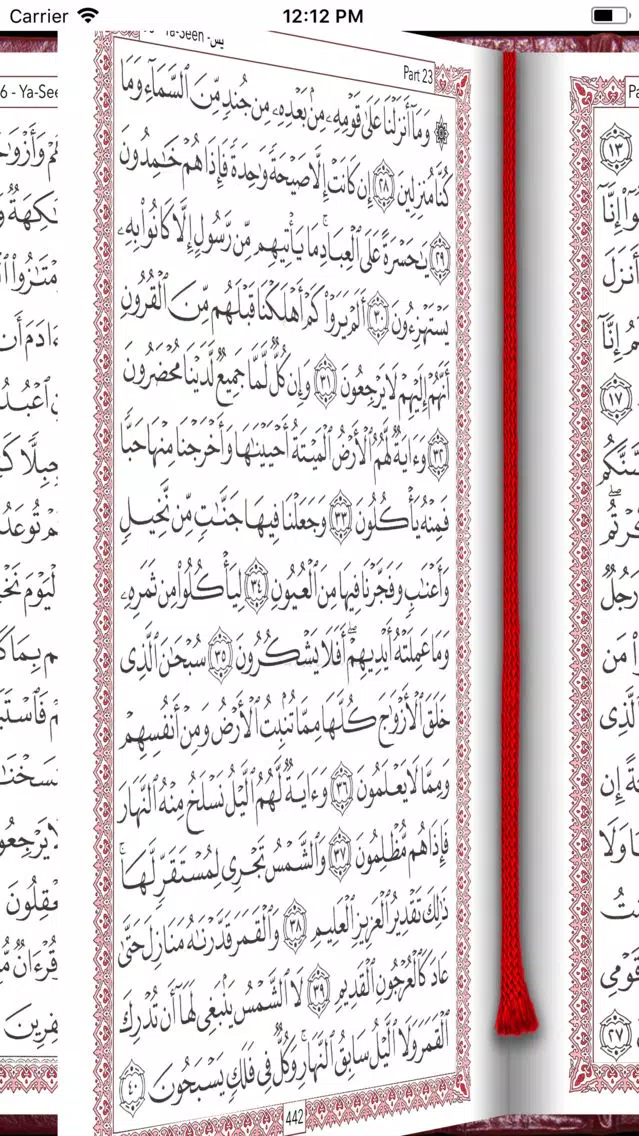 Carrier 12:12 PM
6 - Ya-See
Ya-Seen - يس
Part 23
وَمَآ أَنزَلْنَا عَلَىٰ قَوْمِهِۦ مِنۢ بَعْدِهِۦ مِن جُندٍ مِّنَ ٱلسَّمَآءِ وَمَا
كُنَّا مُنزِلِينَ ٢٨ إِن كَانَتْ إِلَّا صَيْحَةً وَٰحِدَةً فَإِذَا هُمْ خَٰمِدُونَ
٢٩ يَٰحَسْرَةً عَلَى ٱلْعِبَادِ مَا يَأْتِيهِم مِّن رَّسُولٍ إِلَّا كَانُوا۟ بِهِۦ
يَسْتَهْزِءُونَ ٣٠ أَلَمْ يَرَوْا۟ كَمْ أَهْلَكْنَا قَبْلَهُم مِّنَ ٱلْقُرُونِ
أَنَّهُمْ إِلَيْهِمْ لَا يَرْجِعُونَ ٣١ وَإِن كُلٌّ لَّمَّا جَمِيعٌ لَّدَيْنَا مُحْضَرُونَ
٣٢ وَءَايَةٌ لَّهُمُ ٱلْأَرْضُ ٱلْمَيْتَةُ أَحْيَيْنَٰهَا وَأَخْرَجْنَا مِنْهَا حَبًّا
فَمِنْهُ يَأْكُلُونَ ٣٣ وَجَعَلْنَا فِيهَا جَنَّٰتٍ مِّن نَّخِيلٍ
وَأَعْنَٰبٍ وَفَجَّرْنَا فِيهَا مِنَ ٱلْعُيُونِ ٣٤ لِيَأْكُلُوا۟ مِن ثَمَرِهِۦ
وَمَا عَمِلَتْهُ أَيْدِيهِمْ ۖ أَفَلَا يَشْكُرُونَ ٣٥ سُبْحَٰنَ ٱلَّذِى
خَلَقَ ٱلْأَزْوَٰجَ كُلَّهَا مِمَّا تُنۢبِتُ ٱلْأَرْضُ وَمِنْ أَنفُسِهِمْ
وَمِمَّا لَا يَعْلَمُونَ ٣٦ وَءَايَةٌ لَّهُمُ ٱلَّيْلُ نَسْلَخُ مِنْهُ ٱلنَّهَارَ
فَإِذَا هُم مُّظْلِمُونَ ٣٧ وَٱلشَّمْسُ تَجْرِى لِمُسْتَقَرٍّ لَّهَا ۚ
ذَٰلِكَ تَقْدِيرُ ٱلْعَزِيزِ ٱلْعَلِيمِ ٣٨ وَٱلْقَمَرَ قَدَّرْنَٰهُ مَنَازِلَ حَتَّىٰ
عَادَ كَٱلْعُرْجُونِ ٱلْقَدِيمِ ٣٩ لَا ٱلشَّمْسُ يَنۢبَغِى لَهَآ أَن تُدْرِكَ
ٱلْقَمَرَ وَلَا ٱلَّيْلُ سَابِقُ ٱلنَّهَارِ ۚ وَكُلٌّ فِى فَلَكٍ يَسْبَحُونَ ٤٠
442